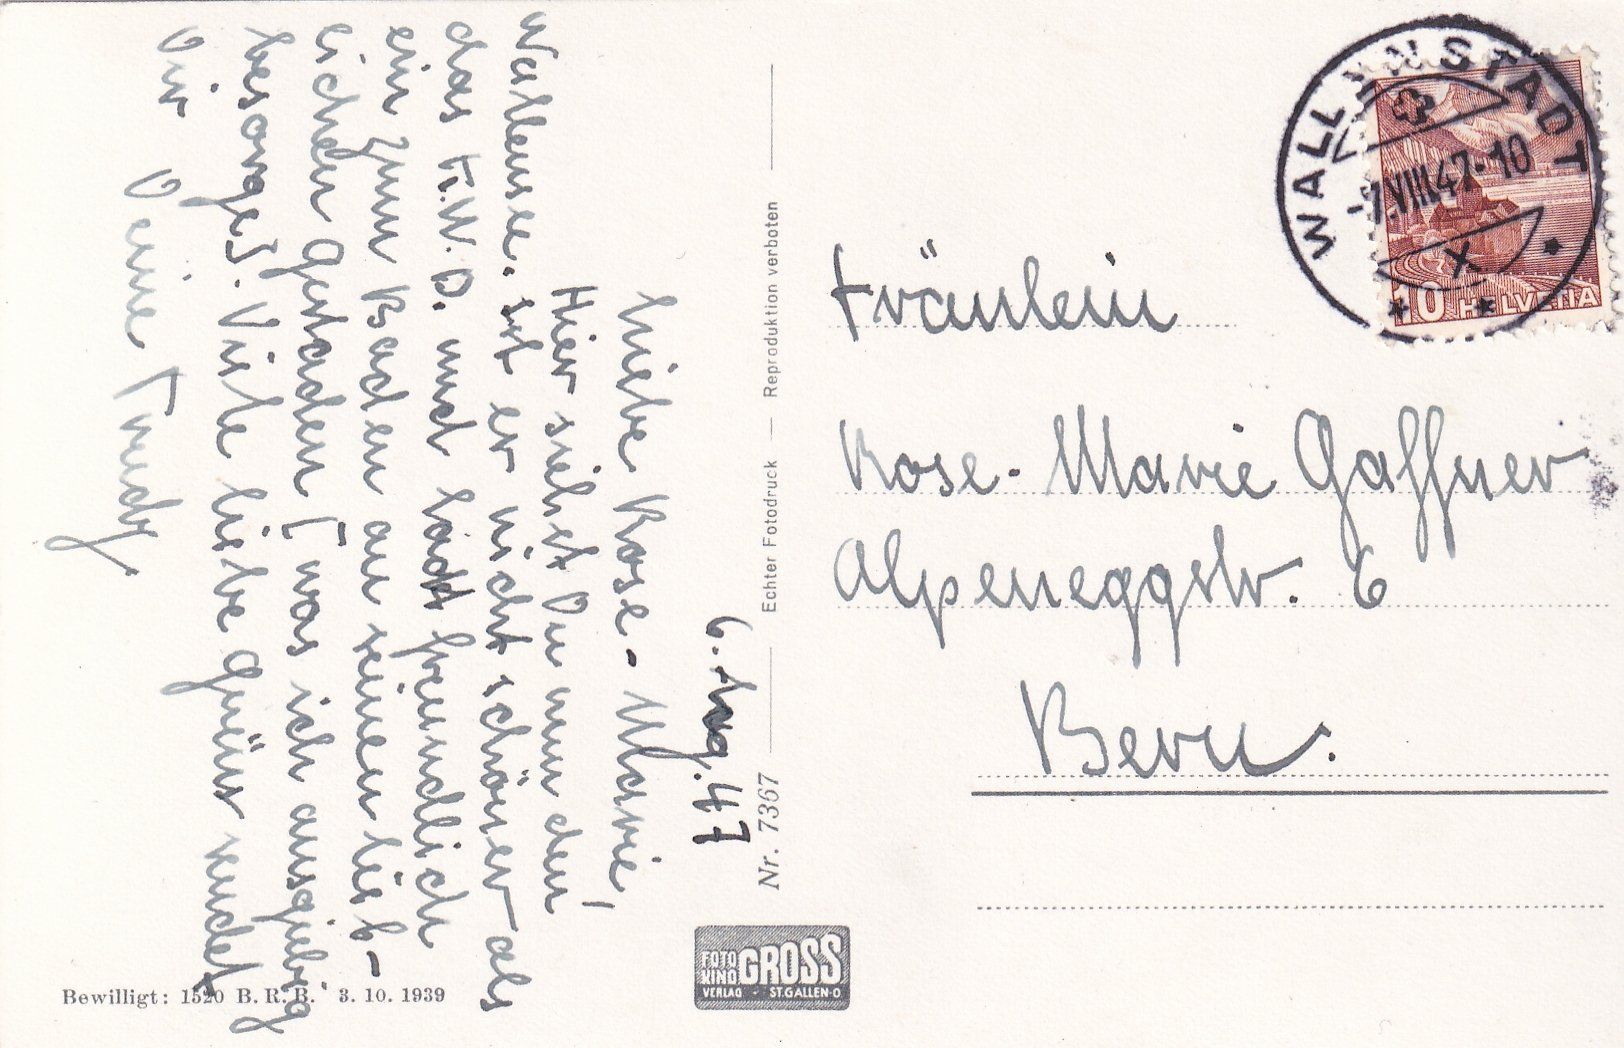 6. Aug. 47
Liebe Rose-Marie,
Hier siehst Du nun den
Wallensee. Ist er nicht schöner als
das F.W.D. und lädt freundlich
ein zum Baden an seinen lieb-
lichen Gestaden [was ich ausgiebig
besorge]. Viele liebe Grüsse sendet
Dir Deine Trudy
Bewilligt: 1520 B. R. B. 3. 10. 1939
Nr. 7367 — Echter Fotodruck — Reproduktion verboten
FOTO
KINO GROSS
VERLAG - ST.GALLEN-O
WALLENSTADT
-7.VIII.47-10
X
10 HELVETIA
Fräulein
Rose-Marie Gaffner
Alpeneggstr. 6
Bern.